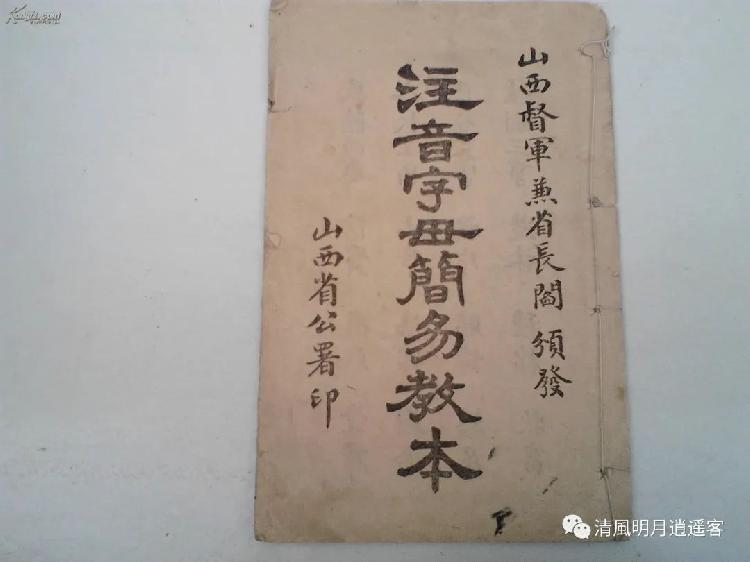 山西督軍兼省長閻 頒發
注音字母簡易教本
山西省公署印
清風明月逍遥客